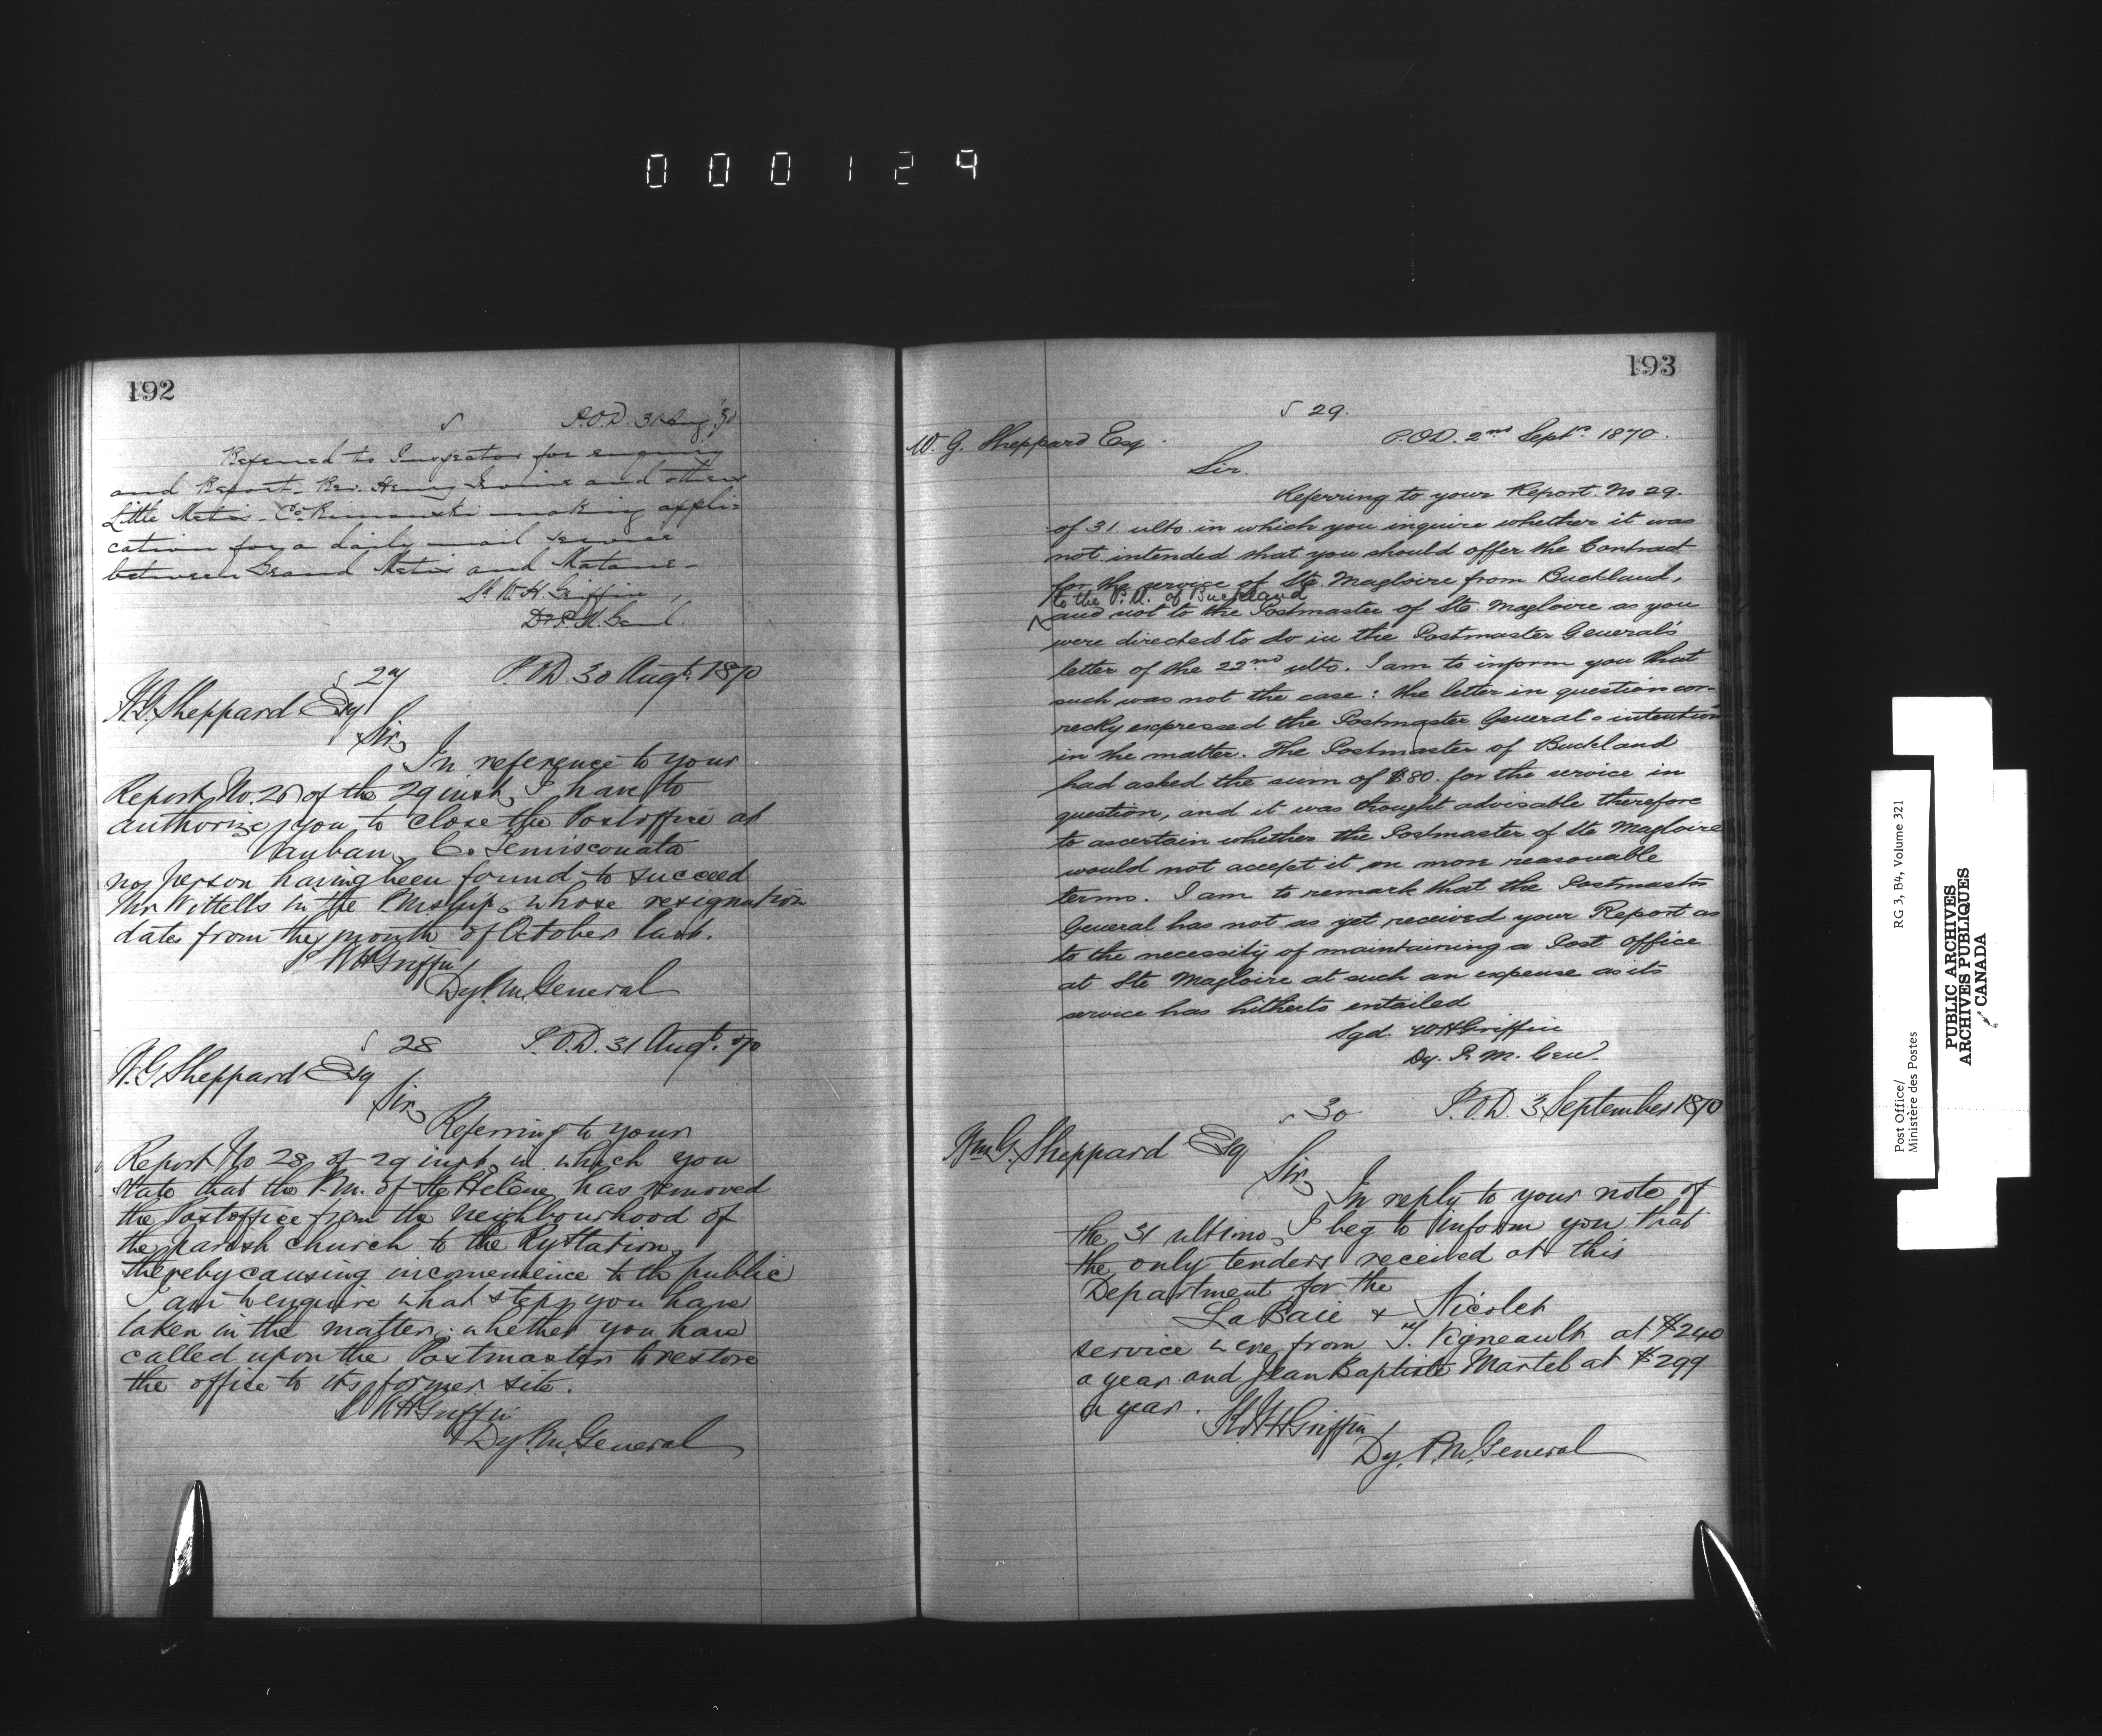 000129
192
S P.O.D. 31 Aug '70
Referred to Inspector for enquiry
and Report. Rev. Henry Irvine and others
Little Metis. Co. Rimouski making appli=
cation for a daily mail service
between Grand Metis and Matane-
Sd. W.H. Griffin,
Dy. P.M. Genl.
S 27 P.O.D. 30 Augt. 1870
W.G. Sheppard Esq
Sir,
In reference to your
Report No. of the 29 inst, I have to
authorize you to close the Postoffice at
Vauban, C. Temisconata
no person having been found to succeed
Mr Wittells in the P.M.ship, whose resignation
dates from the month of October last.
S WHGriffin
Dy. P.M. General
S 28 P.O.D. 31 Augt. 70
W.G. Sheppard Esq
Sir,
Referring to your
Report No 28 of 29 inst, in which you
state that the P.M. of Ste Hélène has removed
the Postoffice from the neighbourhood of
the parish church to the Ry Station,
thereby causing inconvenience to the public
I am to enquire what steps you have
taken in the matter; whether you have
called upon the Postmaster to restore
the office to its former site.
S WHGriffin
Dy. P.M. General
193
S 29.
W. G. Sheppard Esq. P.O.D. 2nd Septr. 1870.
Sir.
Referring to your Report No 29.
of 31 ulto. in which you inquire whether it was
not intended that you should offer the Contract
for the service of Ste. Magloire from Buckland,
to the P.M. of Buckland
and not to the Postmaster of Ste. Magloire as you
were directed to do in the Postmaster General's
letter of the 22nd ulto. I am to inform you that
such was not the case: the letter in question cor-
recly expressed the Postmaster General's intention
in the matter. The Postmaster of Buckland
had asked the sum of $80. for the service in
question, and it was thought advisable therefore
to ascertain whether the Postmaster of Ste Magloire
would not accept it on more reasonable
terms. I am to remark that the Postmaster
General has not as yet received your Report as
to the necessity of maintaining a Post Office
at Ste Magloire at such an expense as its
service has hitherto entailed
Sgd. WHGriffin
Dy. P. M. Genl.
S 30 P.O.D. 3 September 1870
Wm G. Sheppard Esq
Sir,
In reply to your note of
the 31 ultimo, I beg to inform you that
the only tenders received at this
Department for the
La Baie & Nicolet
service were from T. Vigneault at $240
a year and Jean Baptiste Martel at $299
a year.
WHGriffin
Dy. P.M. General
Post Office/ RG 3, B4, Volume 321
Ministère des Postes
PUBLIC ARCHIVES
ARCHIVES PUBLIQUES
CANADA